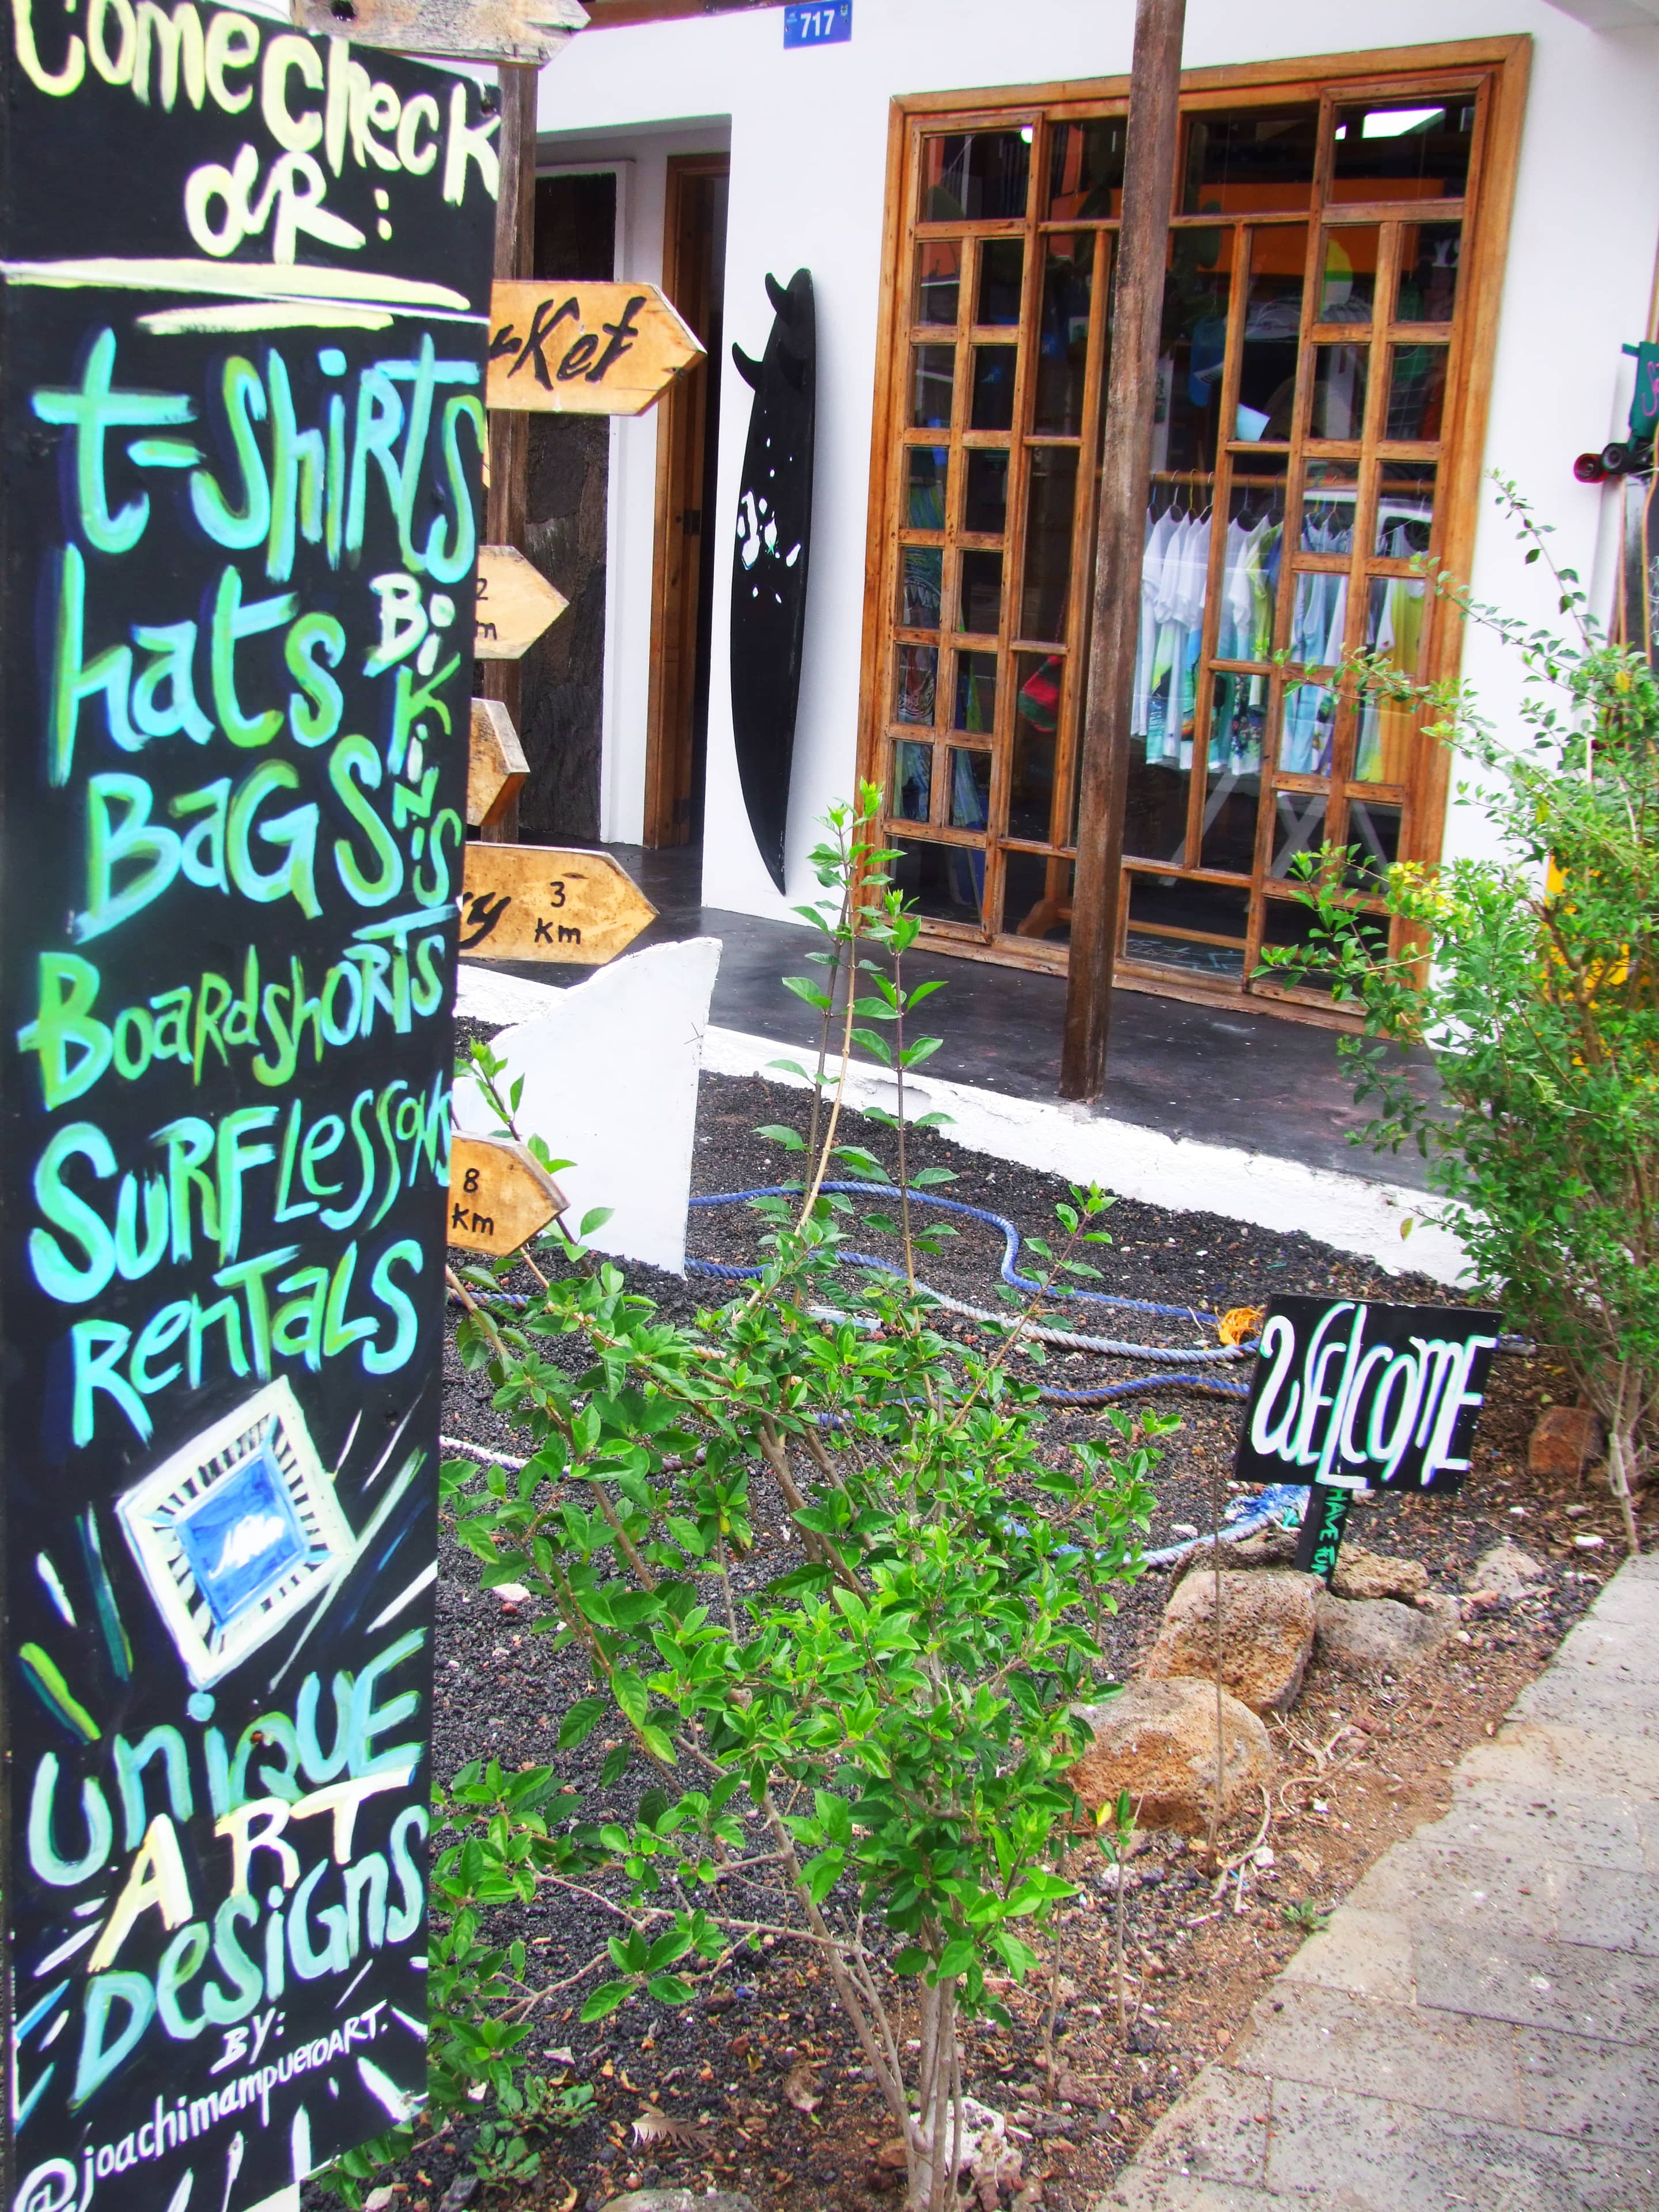 Come check
our:
t-shirts
hats
Bikinis
Bags
Boardshorts
Surf Lessons
rentals
unique
ART
Designs
BY:
@joachimampueroART.
717
3
Km
8
Km
WELCOME
HAVE FUN